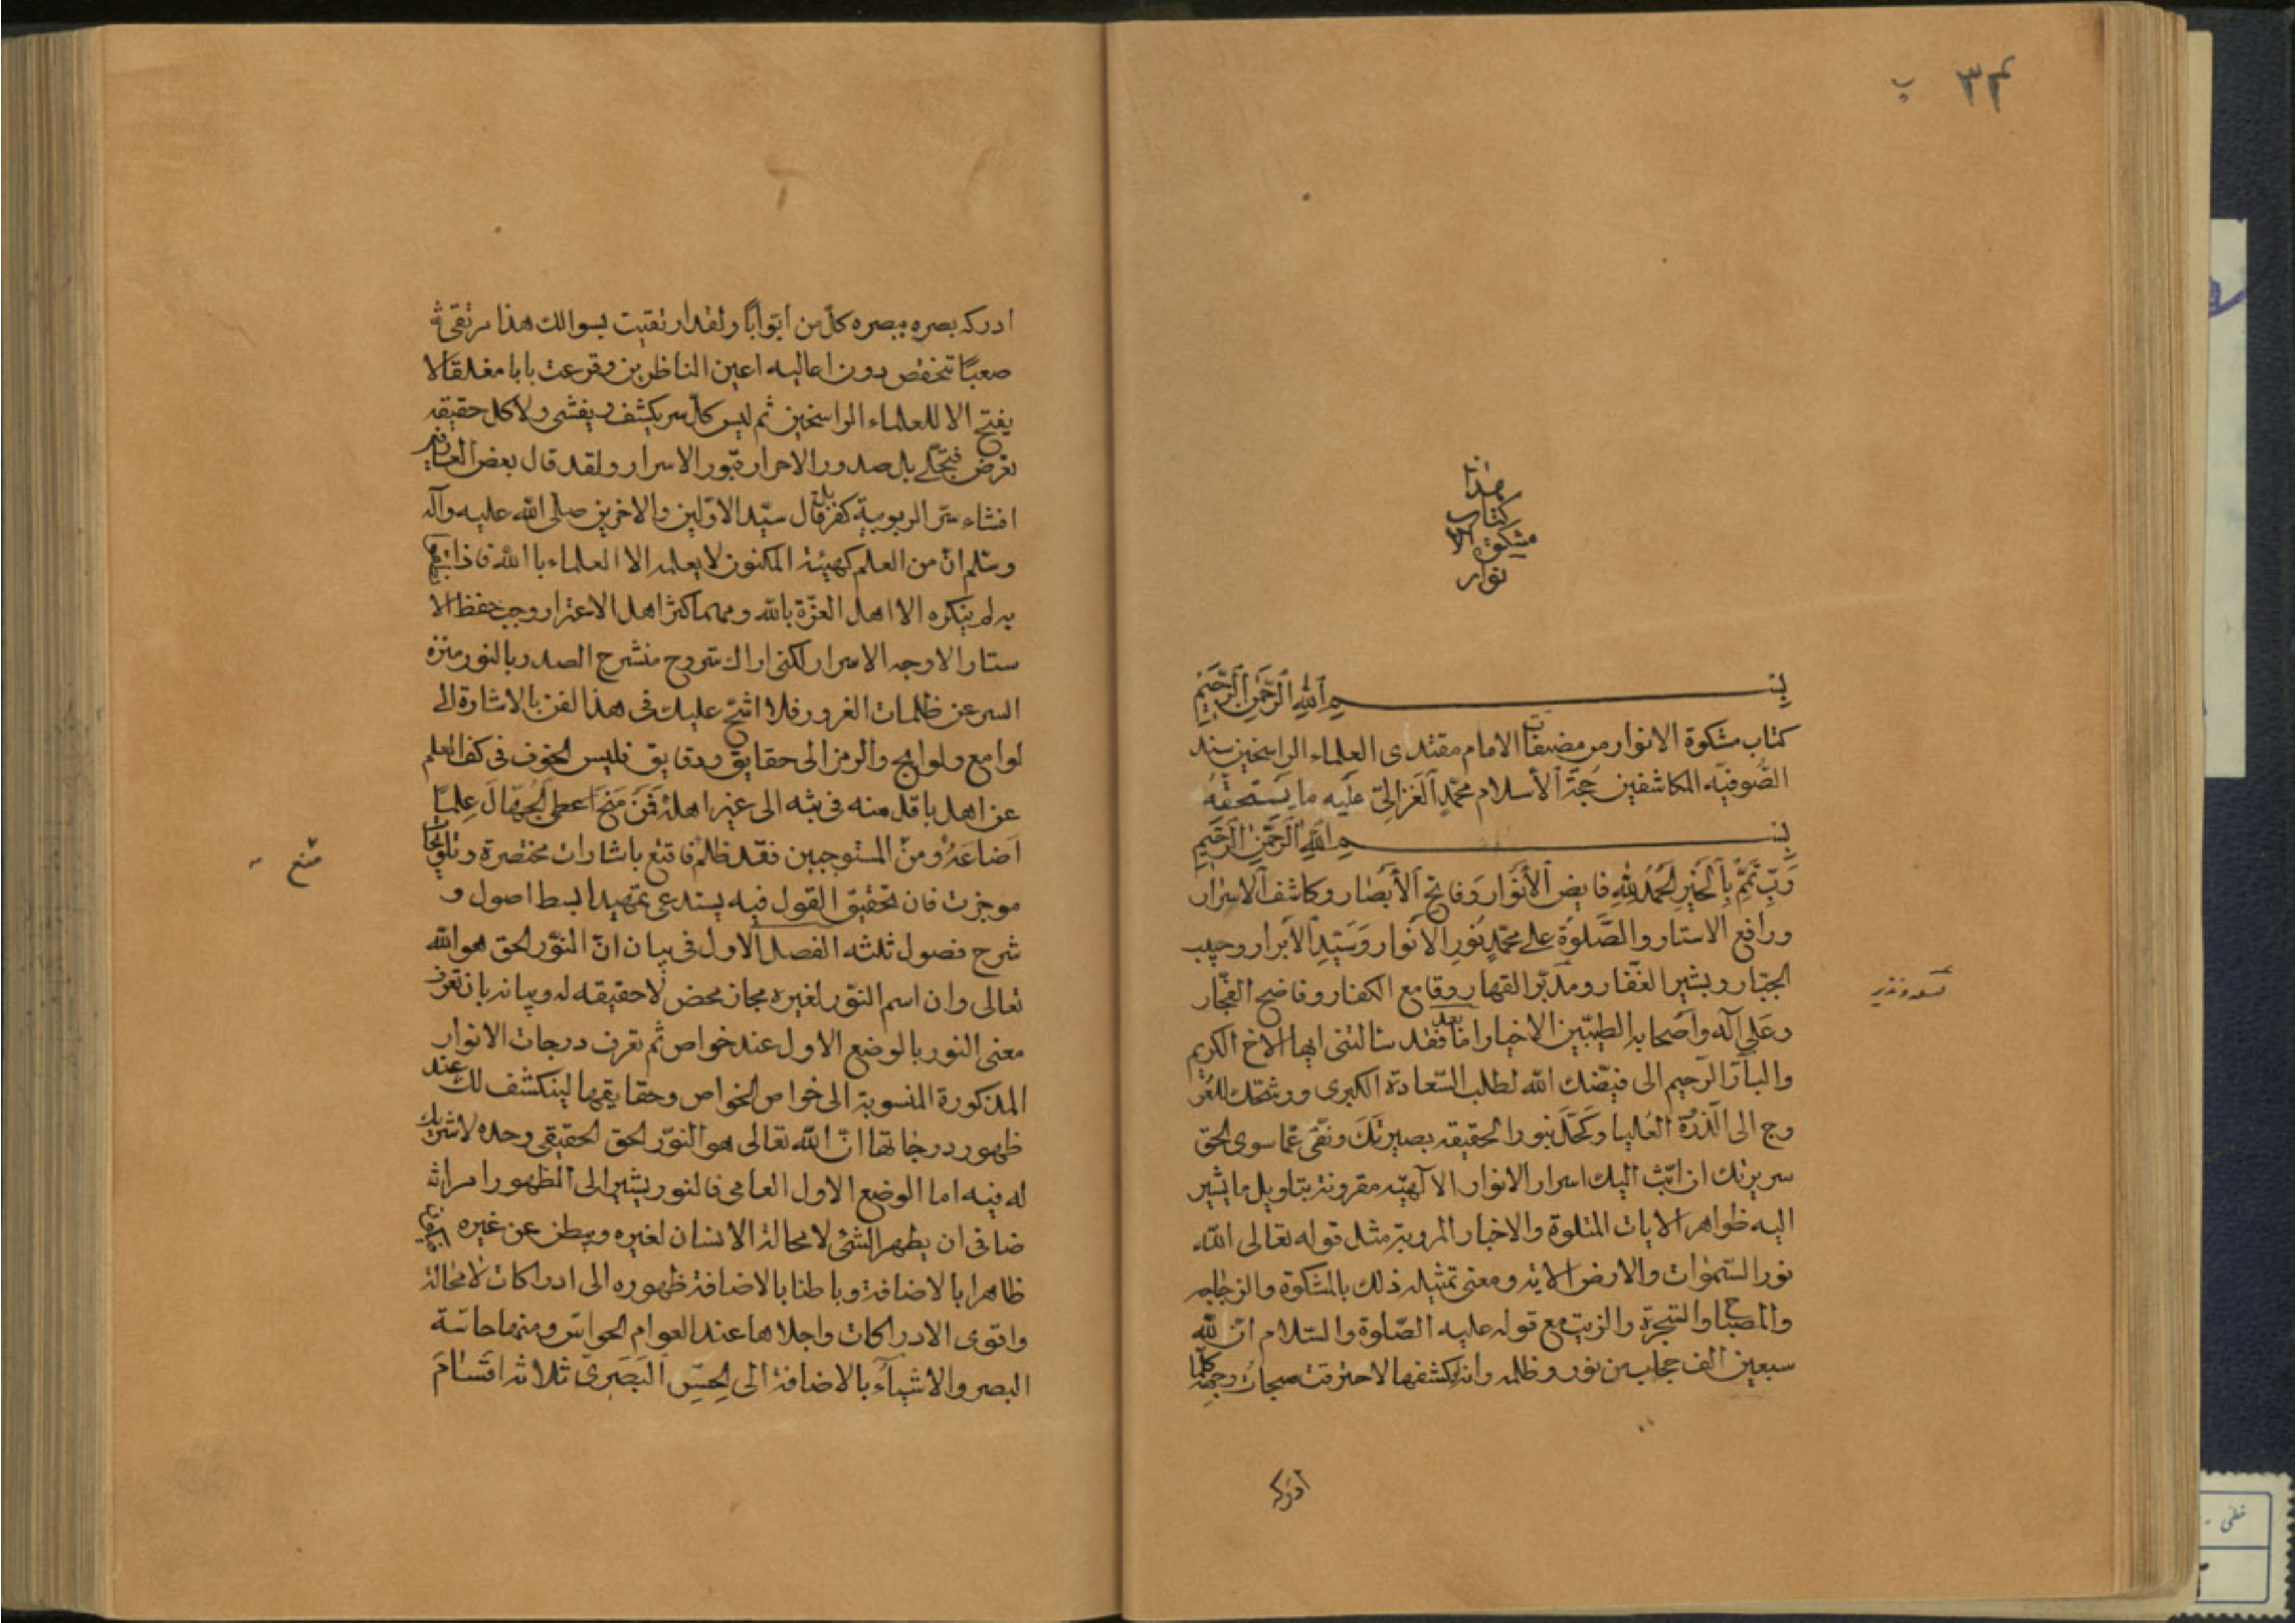 ۳۴ ب
هذا
كتاب
مشكوة الا
نوار
بسم الله الرحمن الرحيم
كتاب مشكوة الانوار من مصنفات الامام مقتدى العلماء الراسخين سند
الصُّوفيّه المكاشفين حجة الأسلام محمّدٍ الغزاليّ عليه ما يستحقّهُ
بسم الله الرحمن الرحيم
رَبِّ تَمِّمْ بِالْخَيْرِ الحَمْدُ لِلّهِ فايض الأنوار وَفاتح الأبصار وكاشف الاسرار
ورافع الاستار والصَّلوٰة على محمّدٍ نُورِ الانوار وَسَيّدِ الأبرار وحبيب
الجبّار وبشير الغفّار ومدبّر القهار وقامع الكفار وفاضح الفجّار
وعَلى آله وأصحابه الطيّبين الاخيار امّا بعد فقد سألتنى ايها الاخ الكريم
والبارّ الرّحيم الى قيّضك الله لطلب السّعادة الكبرى وورشّحك للعُر
وج الى الذروة العُليا وكحّل بنور الحقيقه بصيرتك ونقّى عمّا سوى الحق
سريرتك ان ابّث اليك اسرار الانوار الالهيّه مقرونة بتاويل ما يشير
اليه ظواهر الايات المتلوة والاخبار المروية مثل قوله تعالى الله
نور السّموات والارض الايه ومعنى تمثيله ذلك بالمشكوة والزجاجه
والمصباح والشجرة والزيت مع قوله عليه الصّلوة والسّلام انّ لله
سبعين الف حجاب من نور وظلمه وانه لو كشفها لاحترقت سبحات وجهه كلّما
ادركه
ادركه بصره ببصره كلّ من ابوابًا ولقد ارتقيت بسوالك هذا مرتقىً
صعبًا تنخفض دون اعاليه اعين الناظرين وقرعت بابا مغلقا لا
يفتح الا للعلماء الراسخين ثم ليس كلّ سر يكشف ويفشى ولا كل حقيقه
تعرض فتجلّى بل صدور الاحرار قبور الاسرار ولقد قال بعض العارفين
افشاء سرّ الربوبية كفر بل قال سيّد الاوّلين والاخرين صلى الله عليه وآله
وسّلم انّ من العلم كهيئة المكنون لا يعلمه الا العلماء بالله فاذا نطقوا
به لم ينكره الا اهل العزّة بالله ومهما كثر اهل الاغترار وجب حفظ الا
ستار الا وجه الاسرار لكنى اراك مشروح منشرح الصدر بالنور منزه
السر عن ظلمات الغرور فلا اشحّ عليك فى هذا لفن بالاشارة الى
لوامع ولوايح والرمز الى حقايق ودقايق فليس الخوف فى كف العلم
عن اهل باقل منه فى بثه الى غير اهله فَمَنْ مَنَحَ اعطى الجُهّال عِلمًا
اضاعَهُ ومن المستوجبين فقد ظلم فاقنع باشارات مختصرة وتلويحات
موجزت فان تحقيق القول فيه يستدعى تمهيدا بسط اصول و
شرح فصول ثلثه الفصل الاول فى بيان انّ النوّر الحق هو الله
تعالى وان اسم النوّر لغيره مجاز محض لاحقيقه له وبيانه بان تعرف
معنى النور بالوضع الاول عند خواص ثم تعرف درجات الانوار
المذكورة المنسوبة الى خواص الخواص وحقايقها لينكشف لك عند
ظهور درجاتها انّ الله تعالى هو النوّر الحق الحقيقى وحده لا شريك
له فيه اما الوضع الاول العامى فالنور يشير الى الظهور امر اثـ
ضافى ان يظهر الشئ لامحالة الانسان لغيره ويبطن عن غيره
ظاهرا بالاضافة وباطنا بالاضافة ظهوره الى ادراكات لامحالة
واقوى الادراكات واجلاها عند العوام الحواسّ ومنها حاسّة
البصر والاشياءُ بالاضافة الى الحِسِّ البَصَرىّ ثلاثه اقسَامَ
منع
خطى